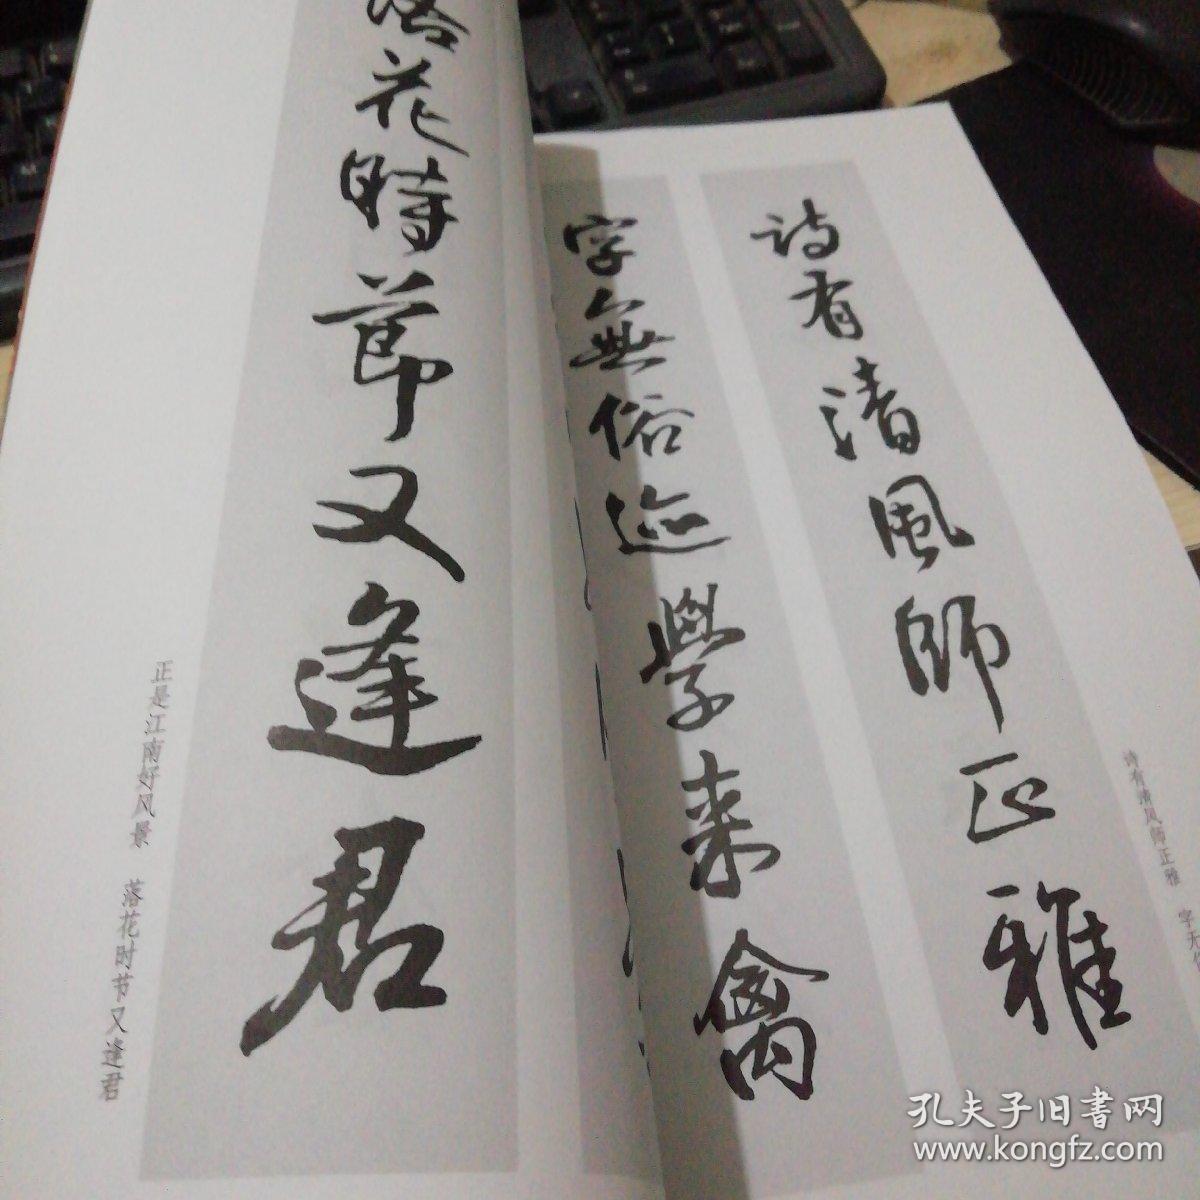 落花時節又逢君
正是江南好风景 落花时节又逢君
詩有清風師正雅
字無俗迹學来禽
诗有清风师正雅 字无
孔夫子旧書网
www.kongfz.com